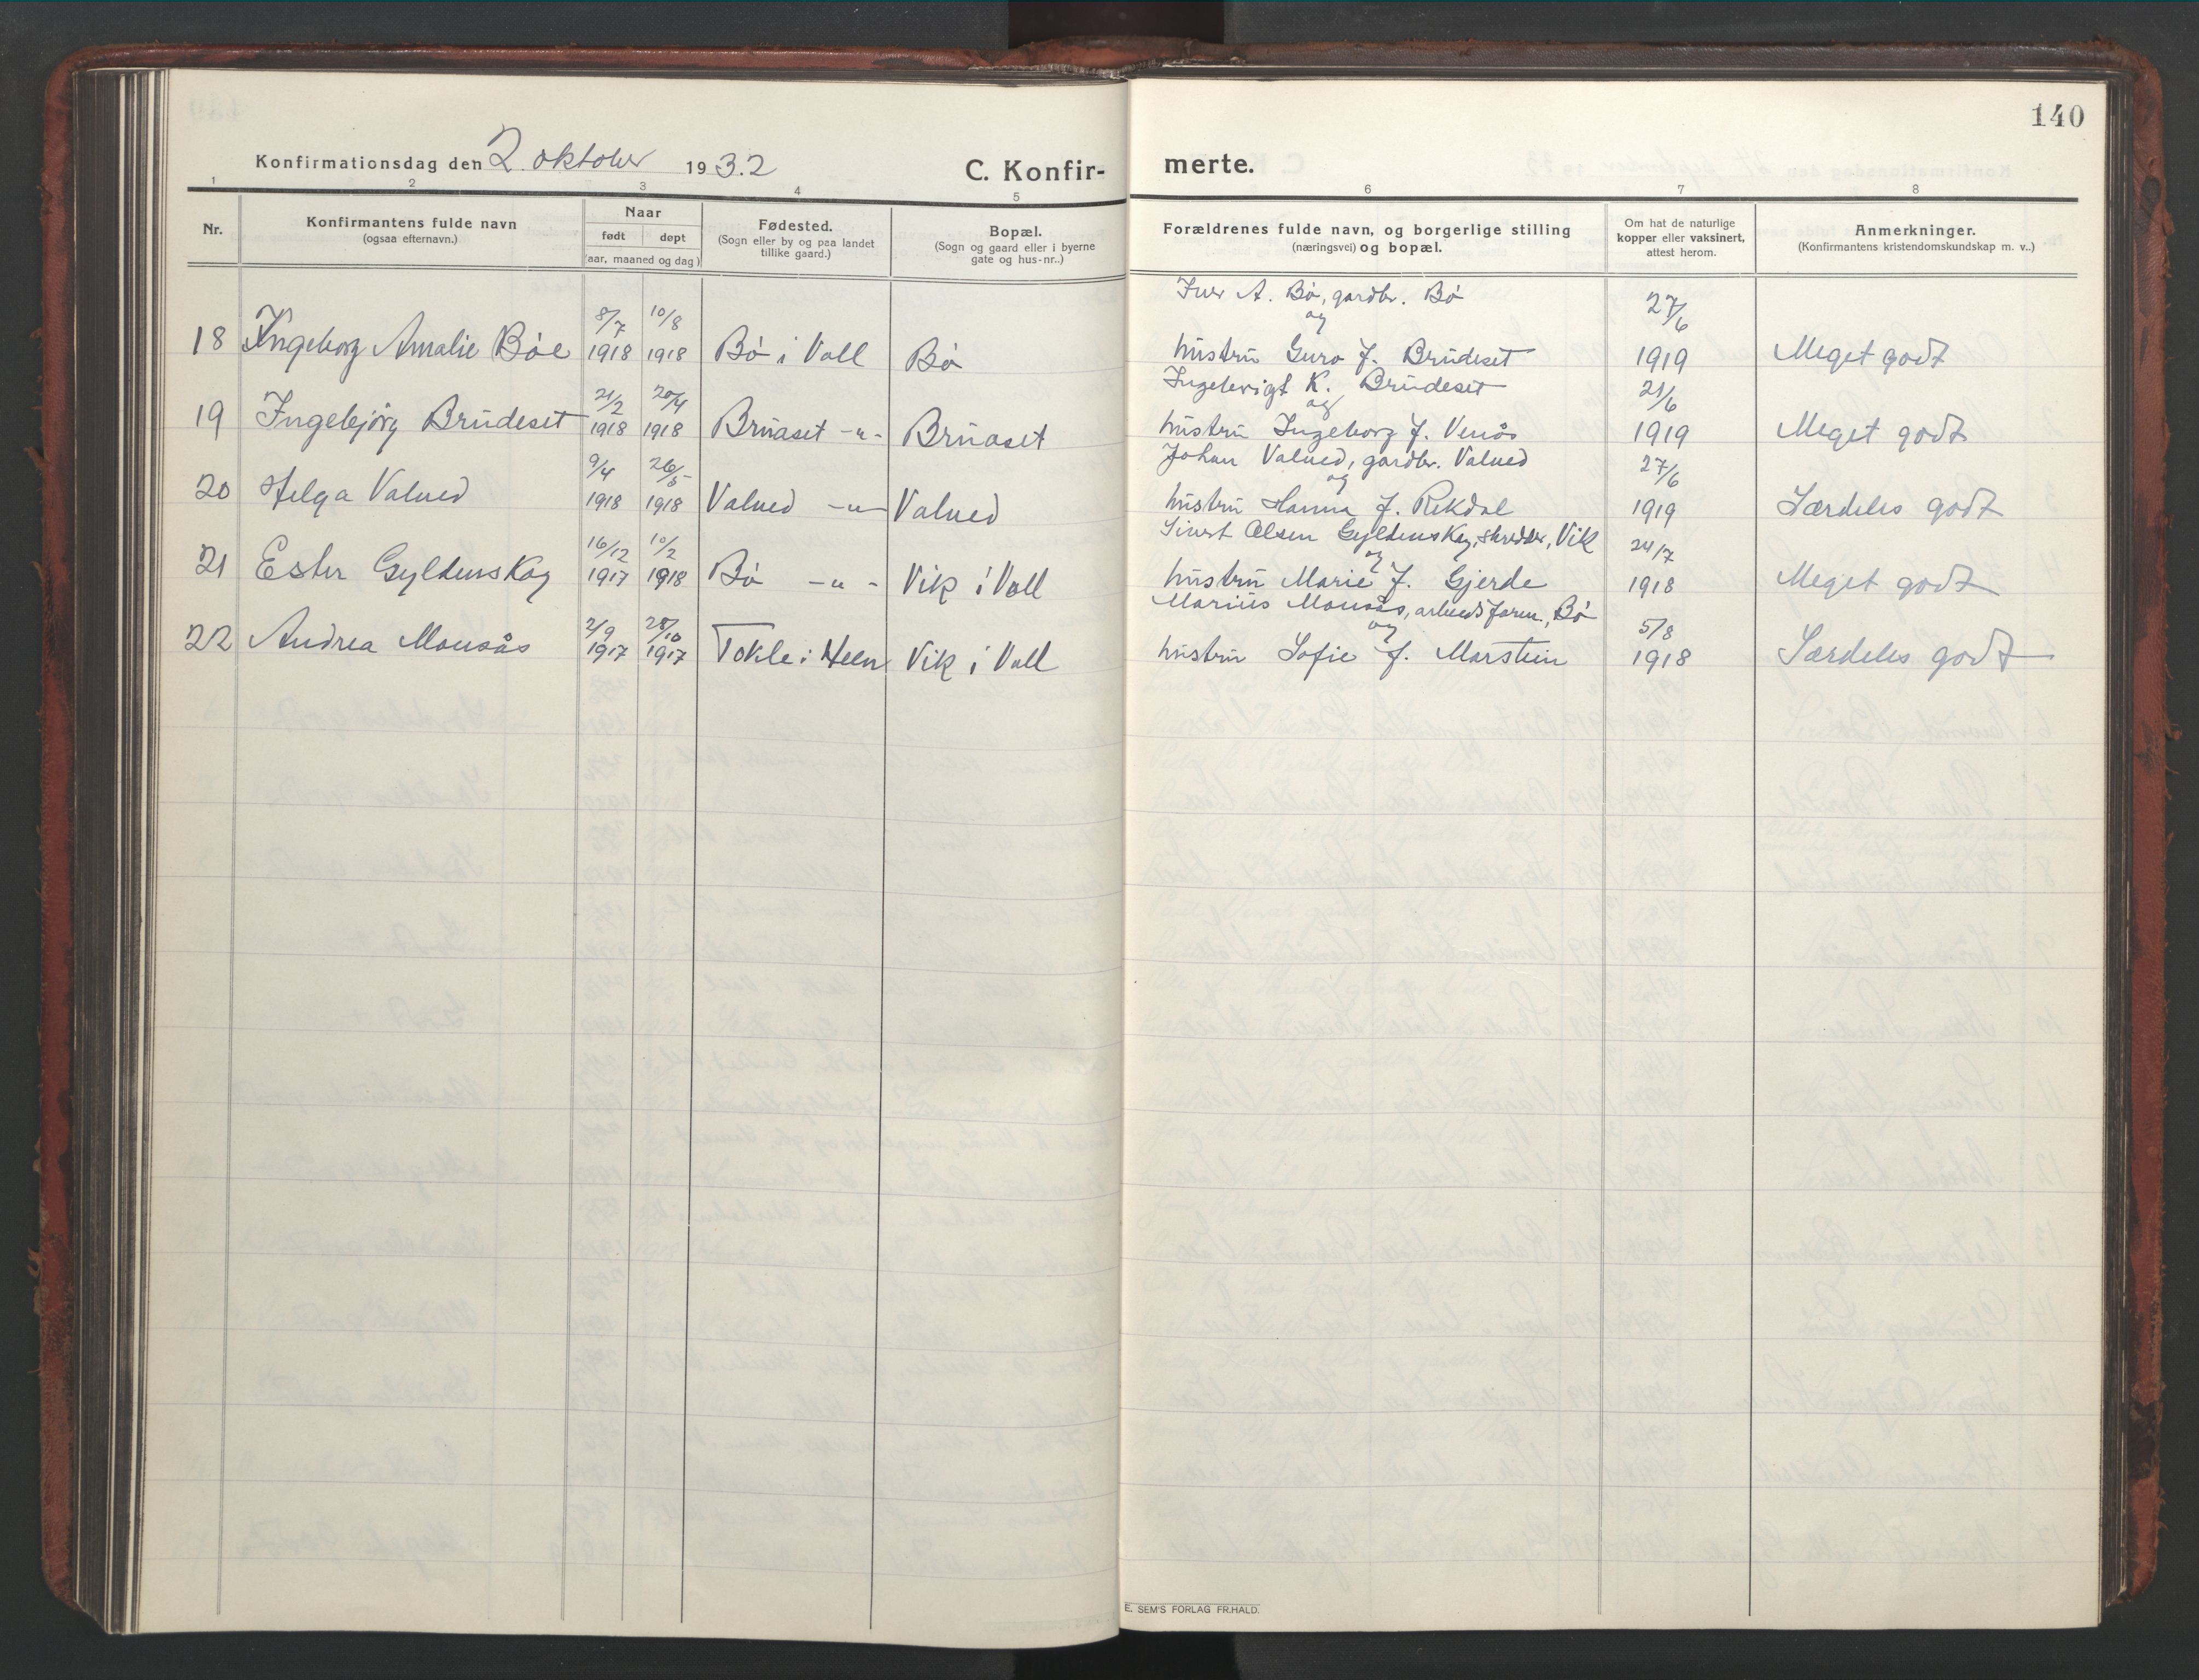 140
Konfirmationsdag den 2. oktober 1932
C. Konfirmerte.
1 2 3 4 5 6 7 8
Nr.
Konfirmantens fulde navn
(ogsaa efternavn.)
Naar
født døpt
(aar, maaned og dag)
Fødested.
(Sogn eller by og paa landet
tillike gaard.)
Bopæl.
(Sogn og gaard eller i byerne
gate og hus-nr..)
Forældrenes fulde navn, og borgerlige stilling
(næringsvei) og bopæl.
Om hat de naturlige
kopper eller vaksinert,
attest herom.
Anmerkninger.
(Konfirmantens kristendomskundskap m. v..)
8/7 10/8 Iver A. Bø, gardbr. Bø 27/6
og
18 Ingeborg Amalie Bøe 1918 1918 Bø i Voll Bø hustru Guro f. Brudeset 1919 Meget godt
21/2 20/4 Ingebrigt K. Brudeset 21/6
og
19 Ingebjørg Brudeset 1918 1918 Bruaset -u- Bruaset hustru Ingeborg f. Venås 1919 Meget godt
9/4 26/5 Johan Valved, gardbr. Valved 27/6
og
20 Helga Valved 1918 1918 Valved -u- Valved hustru Hanna f. Rekdal 1919 Særdeles godt
16/12 10/2 Sivert Olsen Gyldenskog, skredder, Vik 24/7
og
21 Ester Gyldenskog 1917 1918 Bø -u- Vik i Voll hustru Marie f. Gjerde 1918 Meget godt
2/9 28/10 Marius Monsås, arbeidsform., Bø 5/8
og
22 Andrea Monsås 1917 1917 Tokle i Heen Vik i Voll hustru Sofie f. Marstein 1918 Særdeles godt
E. SEM'S FORLAG FR.HALD.